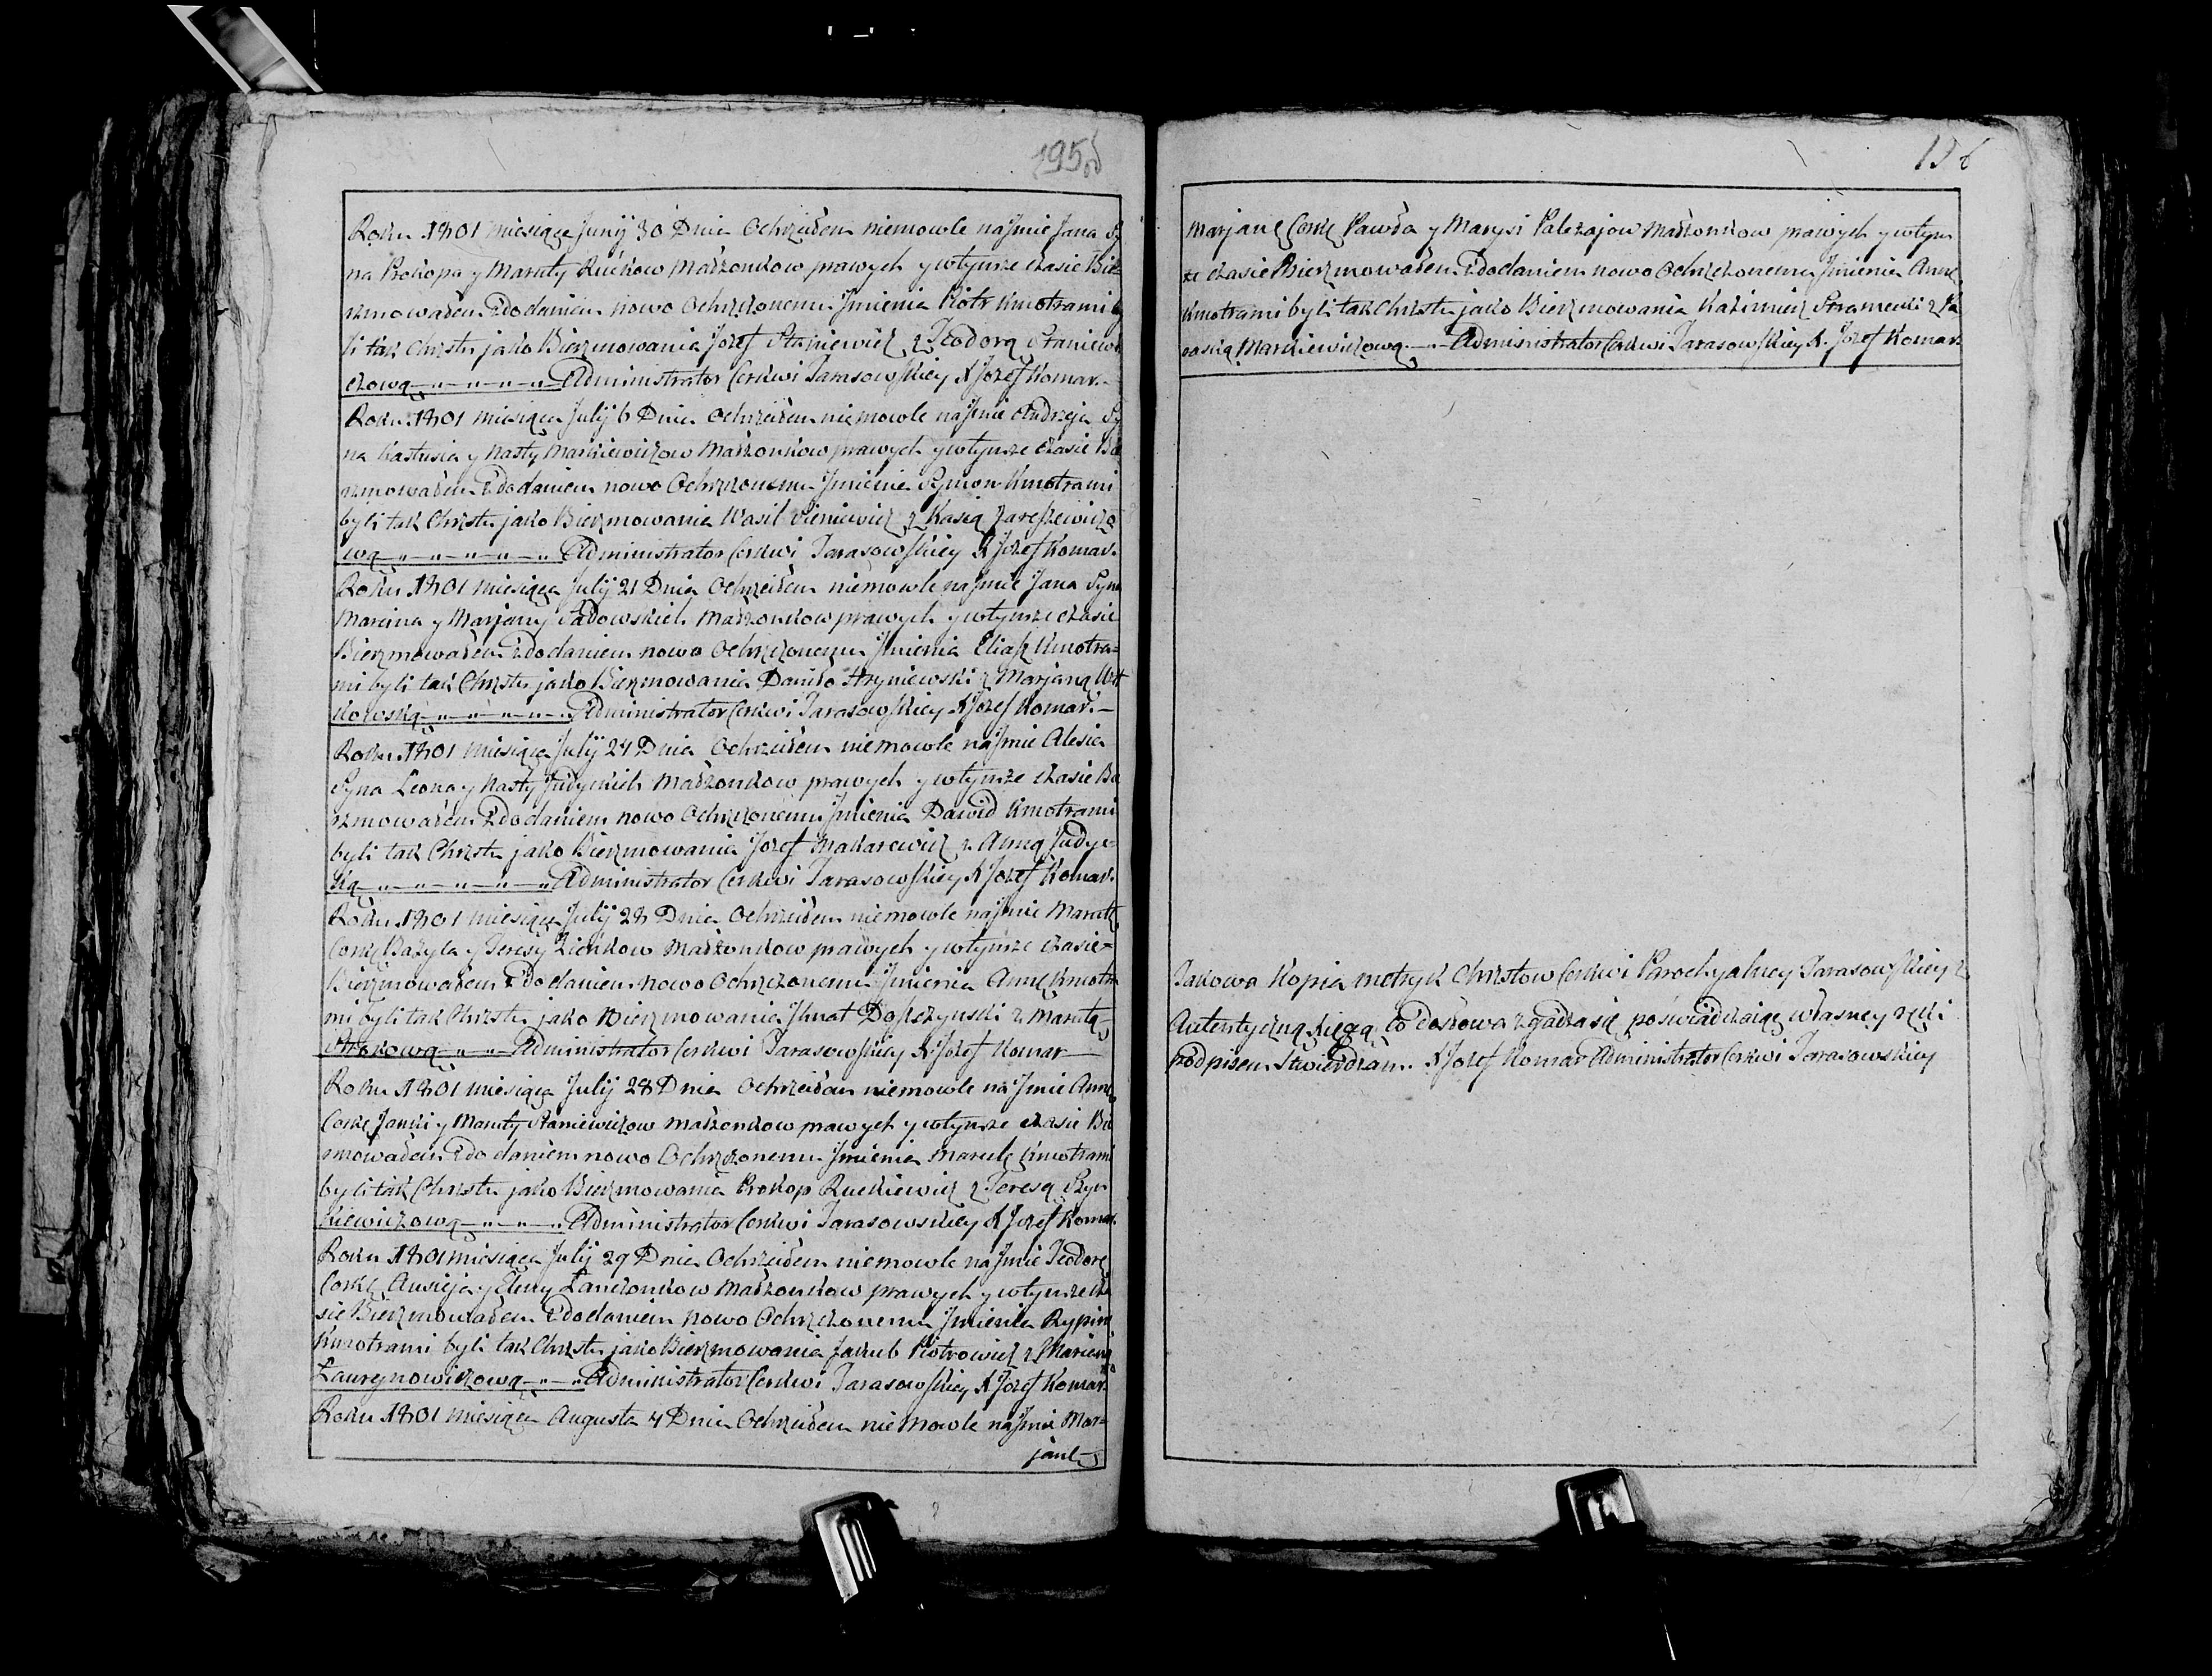 195 об
Roku 1801 miesiąca Junij 30 Dnia Ochrzciłem niemowle na Jmie Jana Sy
na Prokopa y Maruty Ruckow Małżonkow prawych y wtymze czasie Bie
rzmowałem z dodaniem nowo Ochrzczonemu Jmienia Piotr Kmotrami by
li tak Chrztu jako Bierzmowania Jozef Staniewicz z Teodorą Staniewi
czową Administrator Cerkwi Tarasowskiey X Jozef Komar.
Roku 1801 miesiąca Julij 6 Dnia Ochrzciłem niemowle na Jmie Andrzeja Sy
na Kastusia y Nasty Markiewiczow Małżonkow prawych y wtymze czasie Bie
rzmowałem z dodaniem nowo Ochrzczonemu Jmienia Symon Kmotrami
byli tak Chrztu jako Bierzmowania Wasil z Kasią
wą Administrator Cerkwi Tarasowskiey X Jozef Komar.
Roku 1801 miesiąca Julij 21 Dnia Ochrzciłem niemowle na Jmie Jana Syna
Marcina y Marjany Sadowskich Małżonkow prawych y wtymze czasie
Bierzmowałem z dodaniem nowo Ochrzczonemu Jmienia Eliasz Kmotra=
mi byli tak Chrztu jako Bierzmowania Daniło Hryniewski z Marjaną Wit
kowską Administrator Cerkwi Tarasowskiey X Jozef Komar.
Roku 1801 miesiąca Julij 24 Dnia Ochrzciłem niemowle na Jmie Alesia
Syna Leona y Nasty Judyckich Małżonkow prawych y wtymze czasie Bie
rzmowałem z dodaniem nowo Ochrzczonemu Jmienia Dawid Kmotrami
byli tak Chrztu jako Bierzmowania Jozef Makarewicz z Anną Judyc=
ką Administrator Cerkwi Tarasowskiey X Jozef Komar.
Roku 1801 miesiąca Julij 28 Dnia Ochrzciłem niemowle na Jmie Marutę
Corkę Bazyla y Teresy Zienkow Małżonkow prawych y wtymze czasie=
Bierzmowałem z dodaniem nowo Ochrzczonemu Jmienia Annę Kmotra
mi byli tak Chrztu jako Bierzmowania Jhnat z Marutą
Administrator Cerkwi Tarasowskiey X Jozef Komar
Roku 1801 miesiąca Julij 28 Dnia Ochrzciłem niemowle na Jmie Annę
Corkę Janki y Maruty Staniewiczow małżonkow prawych y wtymze czasie Bie
rzmowałem z do daniem nowo Ochrzczonemu Jmienia Marutę Kmotrami
byli tak Chrztu jako Bierzmowania Prokop Ruckiewicz z Teresą Szyn
kiewiczową Administrator Cerkwi Tarasowskiey X Jozef Komar.
Roku 1801 miesiąca Julij 29 Dnia Ochrzciłem niemowle na Jmie Teodorę
Corkę Awsieja y Eleny Małżonkow prawych y wtymze cza
sie Bierzmowałem z dodaniem nowo Ochrzczonemu Jmienia
Kmotrami byli tak Chrztu jako Bierzmowania Jakub Piotrowicz z
Ławrynowiczową Administrator Cerkwi Tarasowskiey X Jozef Komar.
Roku 1801 miesiąca Augusta 4 Dnia Ochrzciłem niemowle na Jmie Mar=
janę
196
Marjanę Corkę Pawła y Marysi Małżonkow prawych y wtym
że czasie Bierzmowałem z dodaniem nowo Ochrzczonemu Jmienia Annę
Kmotrami byli tak Chrztu jako Bierzmowania Kazimierz z Pa
raską Markiewiczową Administrator Cerkwi Tarasowskiey X. Jozef Komar.
Takowa Kopia metryk Chrztow Cerkwi Parochyalney Tarasowskiey z
Autentyczną xięgą co do słowa zgadza się poświadczaiąc własney ręki
podpisem stwierdzam. X Jozef Komar Administrator Cerkwi Tarasowskiey